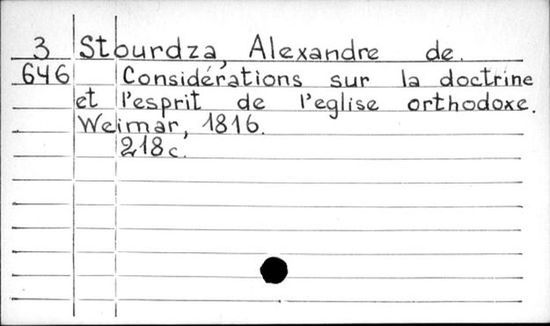 3 Stourdza, Alexandre de.
646 Considérations sur la doctrine
et l'esprit de l'eglise orthodoxe.
Weimar, 1816.
218 c.